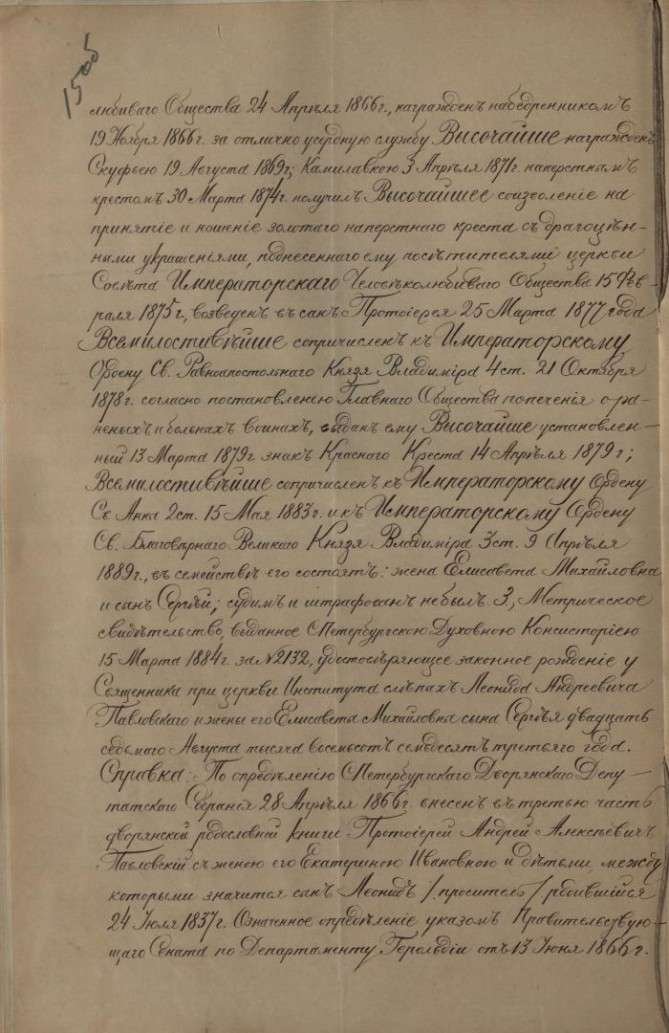 150б
любиваго Общества 24 Апрѣля 1866г., награжденъ набедренникомъ
19 Ноября 1866г. за отлично усердную службу Высочайше награжденъ
Скуфьею 19 Августа 1869г; Камилавкою 3 Апрѣля 1871г наперстнымъ
крестомъ 30 Марта 1874г. получилъ Высочайшее соизволеніе на
принятіе и ношеніе золотаго наперстнаго креста съ драгоцѣн-
ными украшеніями, поднесеннаго ему посѣтителями церкви
Совѣта Императорскаго Человѣколюбиваго Общества 15 Фев-
раля 1875г, возведенъ въ санъ Протоіерея 25 Марта 1877 года
Всемилостивѣйше сопричисленъ къ Императорскому
Ордену Св. Равноапостольнаго Князя Владиміра 4 ст. 21 Октября
1878г. согласно постановленію Главнаго Общества попеченія о ра-
неныхъ и больныхъ воинахъ, выданъ ему Высочайше установлен-
ный 13 Марта 1879г знакъ Краснаго Креста 14 Апрѣля 1879г;
Всемилостивѣйше сопричисленъ къ Императорскому Ордену
Св Анны 2 ст. 15 Мая 1883г. и къ Императорскому Ордену
Св. Благовѣрнаго Великаго Князя Владиміра 3 ст. 9 Апрѣля
1889г., въ семействѣ его состоятъ: жена Елисавета Михайловна
и сынъ Сергѣй; судимъ и штрафованъ не былъ. 3, Метрическое
свидѣтельство, выданное СПетербургскою Духовною Консисторіею
15 Марта 1884г. за №2132, удостовѣряющее законное рожденіе у
Священника при церкви Института слѣпыхъ Леонида Андреевича
Павловскаго и жены его Елисаветы Михайловны сына Сергѣя двадцать
седьмаго Августа тысяча восемьсотъ семьдесятъ третьяго года.
Справка: По опредѣленію СПетербургскаго Дворянскаго Депу-
татскаго Собранія 28 Апрѣля 1866г. внесенъ въ третью часть
дворянской родословной книги Протоіерей Андрей Алексѣевичъ
Павловскій съ женою его Екатериною Ивановною и дѣтьми, между
которыми значится сынъ Леонидъ /проситель/ родившійся
24 Іюля 1837г. Означенное опредѣленіе указомъ Правительствую-
щаго Сената по Департаменту Герольдіи отъ 13 Іюня 1866г.